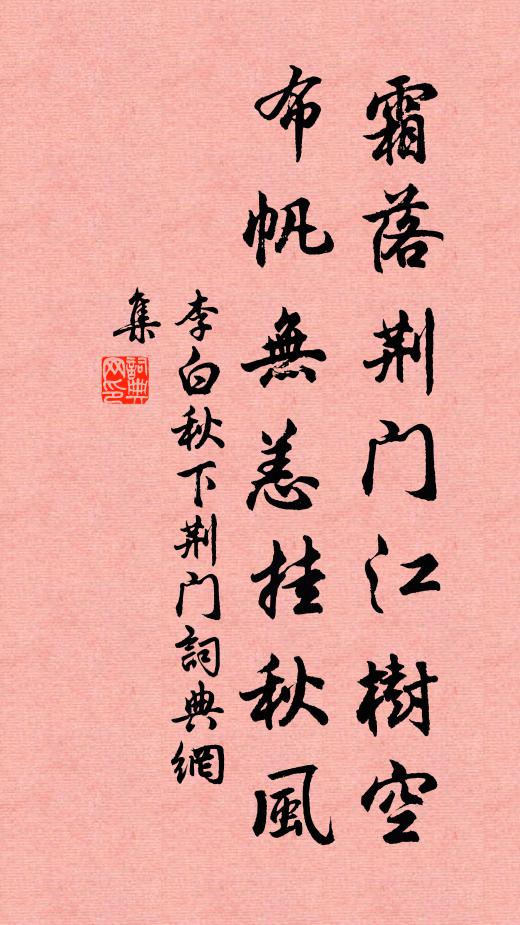 霜落荆门江樹空
布帆無恙挂秋風
李白秋下荆门詞典網
集
詞典网印